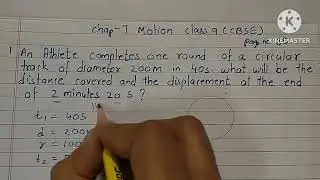 Chap-7 Motion class 9 (CBSE)
KINEMASTER
1 An Athlete completes one round of a circular
track of diameter 200m in 40s. what will be the
distance covered and the displacement at the end
of 2 minutes 20 s ?
t₁ = 40s
d = 200
r = 100
t₂ =